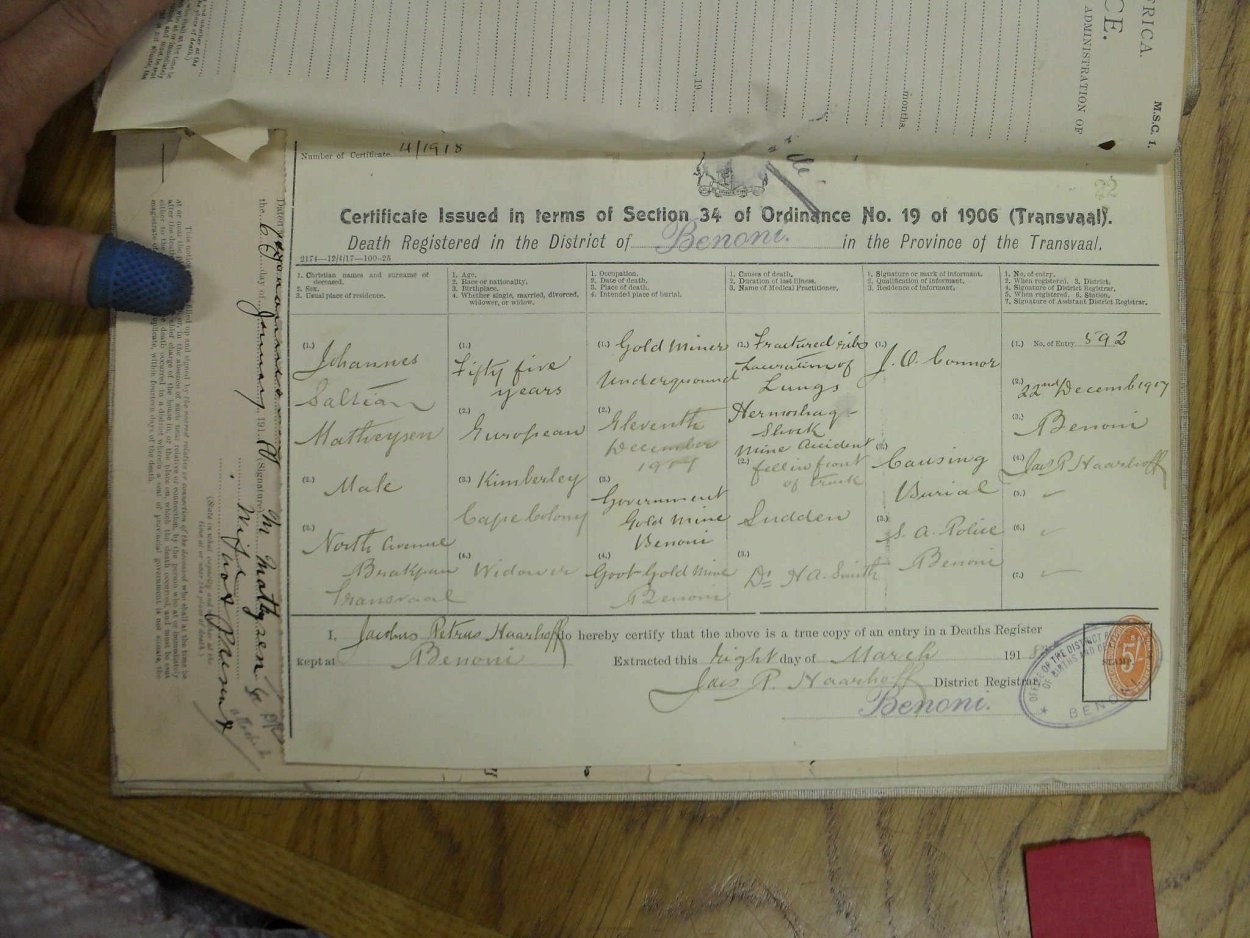 FRICA.
CE.
ADMINISTRATION OF
M.S.C. 1.
months.
19
Number of Certificate 4/1918
Certificate Issued in terms of Section 34 of Ordinance No. 19 of 1906 (Transvaal).
Death Registered in the District of Benoni. in the Province of the Transvaal.
2174—12/4/17—100-25
1. Christian names and surname of deceased.
2. Sex.
3. Usual place of residence.
1. Age.
2. Race or nationality.
3. Birthplace.
4. Whether single, married, divorced, widower, or widow.
1. Occupation.
2. Date of death.
3. Place of death.
4. Intended place of burial.
1. Causes of death.
2. Duration of last illness.
3. Name of Medical Practitioner.
1. Signature or mark of informant.
2. Qualification of informant.
3. Residence of informant.
1. No. of entry.
2. When registered. 3. District.
4. Signature of District Registrar.
5. When registered. 6. Station.
7. Signature of Assistant District Registrar.
(1.) Johannes
Saltian
Matheysen
(2.) Male
(3.) North Avenue
Brakpan
Transvaal
(1.) Fifty five
years
(2.) European
(3.) Kimberley
Cape Colony
(4.) Widower
(1.) Gold Miner
Underground
(2.) Eleventh
December
1917
(3.) Government
Gold Mine
Benoni
(4.) Govt Gold Mine
Benoni
(1.) Fractured ribs
Laceration of
Lungs
Hermoshage
Shock
Mine Accident
(2.) fell in front
of truck
Sudden
(3.) Dr H A. Smith
(1.) J. O Connor
(2.) Causing
Burial
(3.) S. A. Police
Benoni
(1.) No. of Entry 592
(2.) 22nd December 1917
(3.) Benoni
(4.) Jas P. Haarhoff
(5.)
(6.)
(7.)
I, Jacobus Petrus Haarhoff do hereby certify that the above is a true copy of an entry in a Deaths Register
kept at Benoni Extracted this eight day of March 1918
Jas P. Haarhoff District Registrar
Benoni.
OFFICE OF THE DISTRICT
OF BIRTHS AND
BENONI
STAMP
5/-
the 6 day of January 191
(Signature) M Mathysen